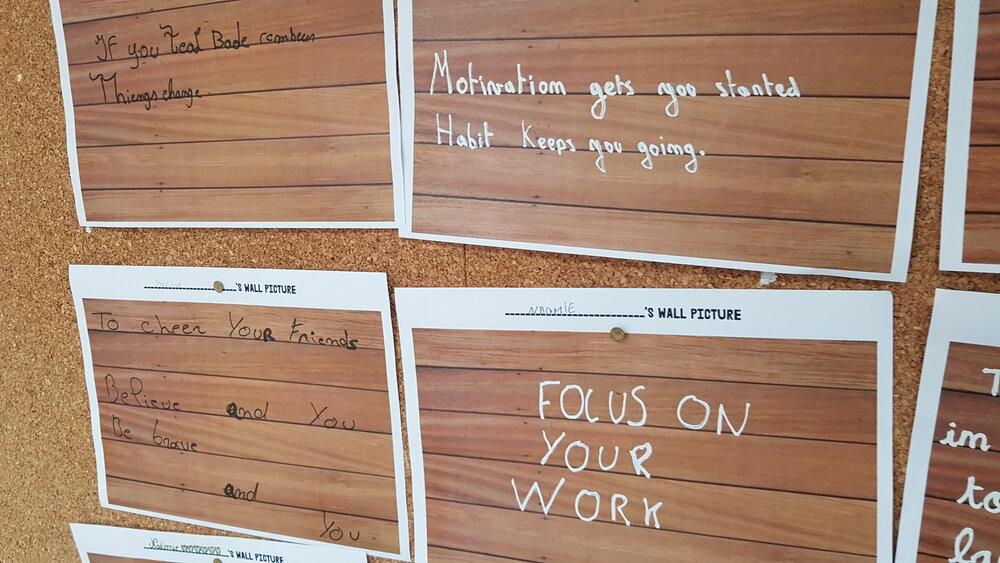 IF you feal Bade
Thiengs change.
Motivation gets you started
Habit Keeps you going.
'S WALL PICTURE
To cheer YouR Friends
Believe and You
Be brave
and
You
NAOMIE 'S WALL PICTURE
FOCUS ON
YOUR
WORK
'S WALL PICTURE
in
to